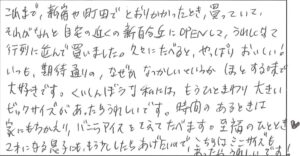 これまで、新宿や町田でとおりかかったとき、買っていて、
それがなんと自宅の近くの新百合丘にOPENして、うれしくなて
行列に並んで買いました。久々にたべると、やっぱりおいしい！
いつも、期待通りの、なぜかなつかしいというか ほっとする味で
大好きです。くいしんぼうな私には、もうひとまわり大きい
ビックサイズがあったらうれしいです。時間のあるときは
家にもちかえり、バニラアイスをそえてたべます。至福のひととき
2才になる息子にも、もう少ししたらあげたいので、こちらはミニサイズも
あったらうれしいです！